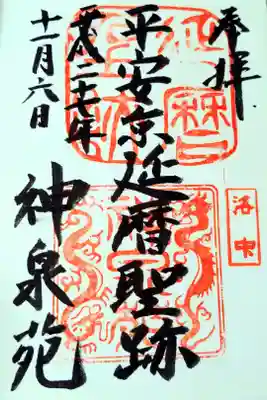 奉拝
平安京延暦聖跡
神泉苑
平成二十七年
十一月六日
洛中